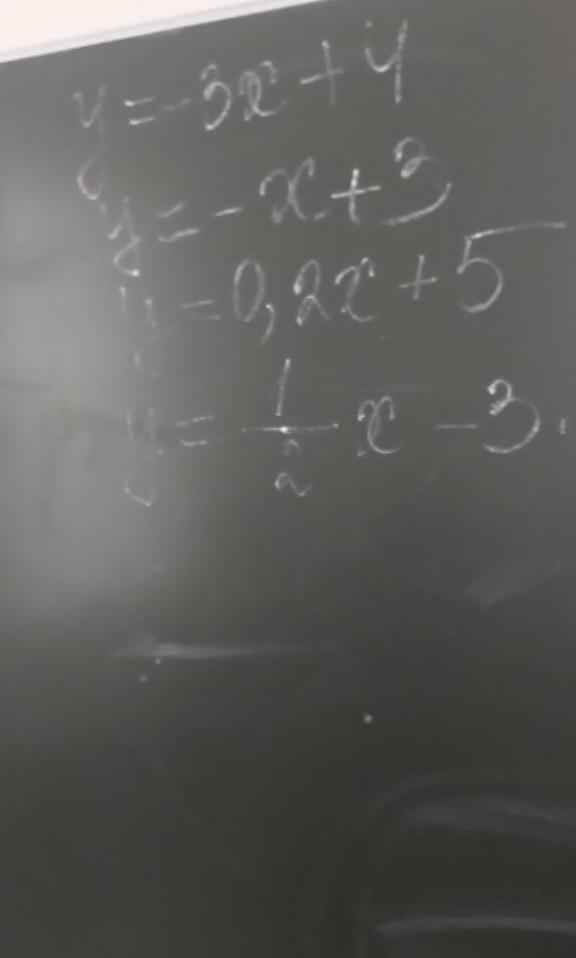 y = -3x + 4
y = -x + 3
y = 0,2x + 5
y = 1/2 x - 3.